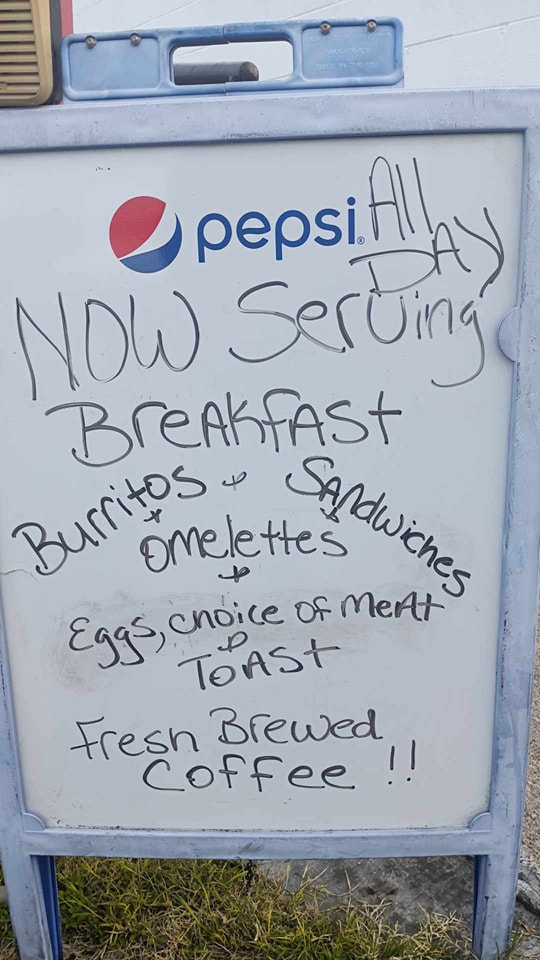 pepsi® All
DAY
NOW Serving
BreAkfASt
Burritos + SANdwiches
+ omelettes +
+
Eggs, choice of MeAt
+
ToASt
Fresh Brewed
coffee !!